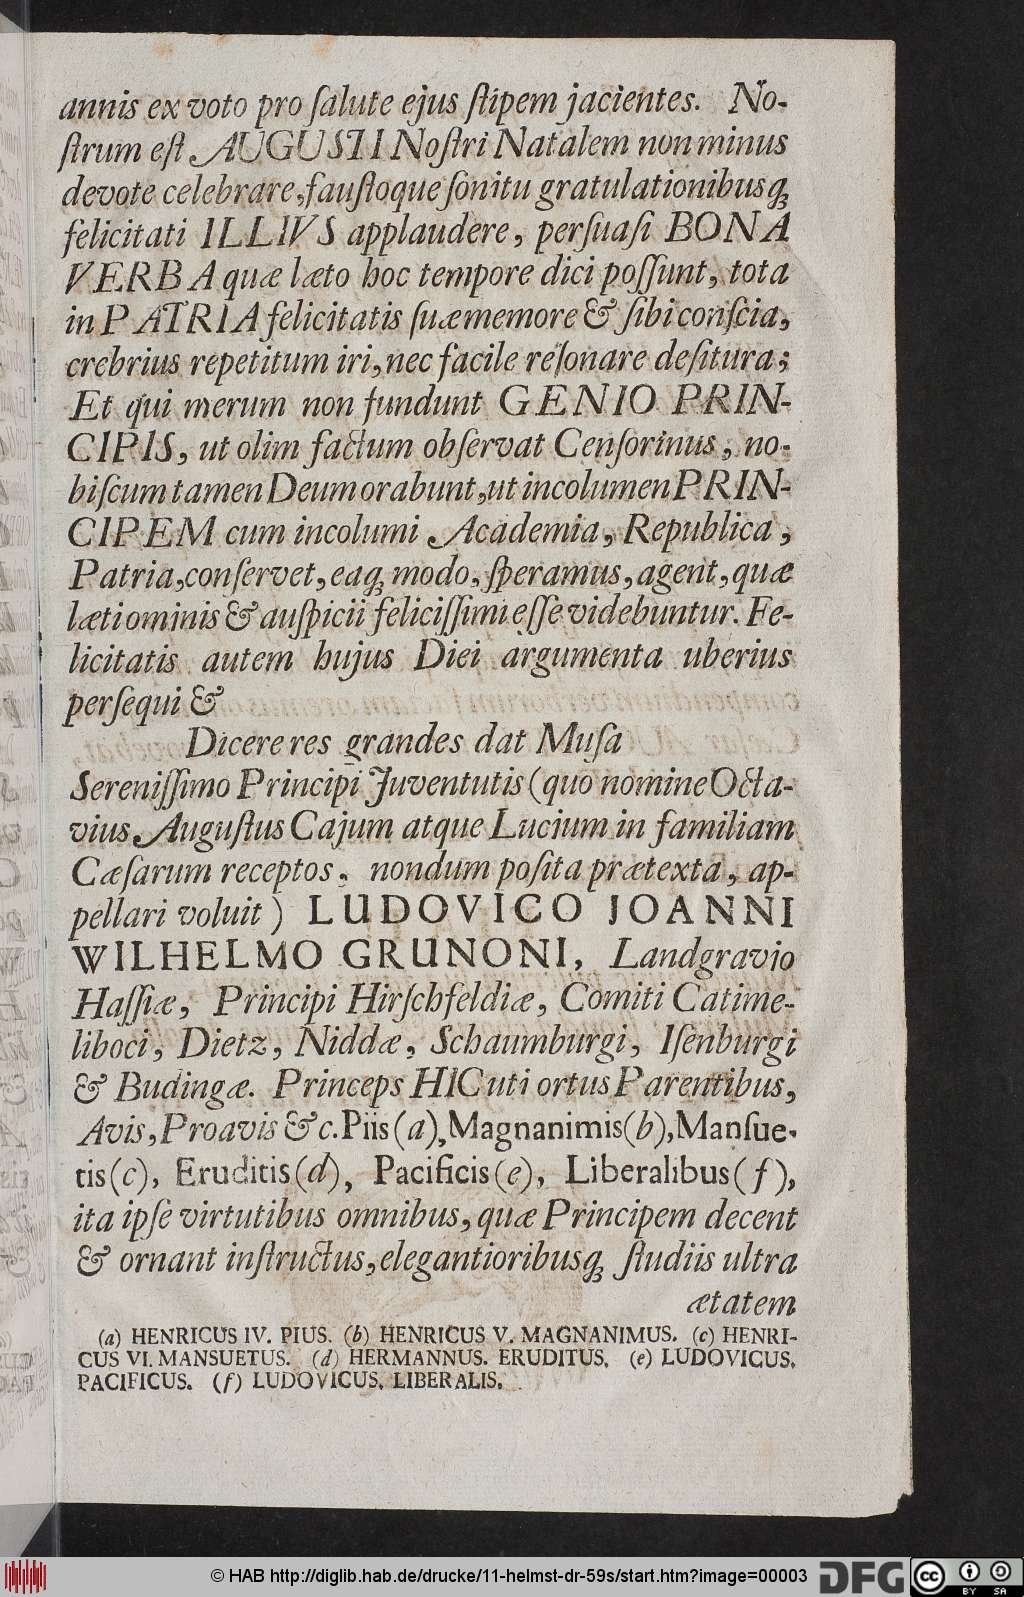 annis ex voto pro ſalute ejus ſtipem jacientes. No-
ſtrum eſt AUGUSTI Noſtri Natalem non minus
devote celebrare, fauſtoque ſonitu gratulationibusq́;
felicitati ILLIVS applaudere, perſuaſi BONA
VERBA quæ læto hoc tempore dici poſſunt, tota
in PATRIA felicitatis ſuæ memore & ſibi conſcia,
crebrius repetitum iri, nec facile reſonare deſitura;
Et qui merum non fundunt GENIO PRIN-
CIPIS, ut olim factum obſervat Cenſorinus, no-
biſcum tamen Deum orabunt, ut incolumen PRIN-
CIPEM cum incolumi Academia, Republica,
Patria, conſervet, eaq; modo, ſperamus, agent, quæ
læti ominis & auſpicii feliciſſimi eſſe videbuntur. Fe-
licitatis autem hujus Diei argumenta uberius
perſequi &
Dicere res grandes dat Muſa
Sereniſſimo Principi Juventutis (quo nomine Octa-
vius Auguſtus Cajum atque Lucium in familiam
Cæſarum receptos, nondum poſita prætexta, ap-
pellari voluit) LUDOVICO JOANNI
WILHELMO GRUNONI, Landgravio
Haſſiæ, Principi Hirſchfeldiæ, Comiti Catime-
liboci, Dietz, Niddæ, Schaumburgi, Iſenburgi
& Budingæ. Princeps HIC uti ortus Parentibus,
Avis, Proavis &c. Piis (a), Magnanimis (b), Manſue-
tis (c), Eruditis (d), Pacificis (e), Liberalibus (f),
ita ipſe virtutibus omnibus, quæ Principem decent
& ornant inſtructus, elegantioribusq; ſtudiis ultra
ætatem
(a) HENRICUS IV. PIUS. (b) HENRICUS V. MAGNANIMUS. (c) HENRI-
CUS VI. MANSUETUS. (d) HERMANNUS. ERUDITUS. (e) LUDOVICUS.
PACIFICUS. (f) LUDOVICUS. LIBERALIS.
© HAB http://diglib.hab.de/drucke/11-helmst-dr-59s/start.htm?image=00003
DFG
cc BY SA